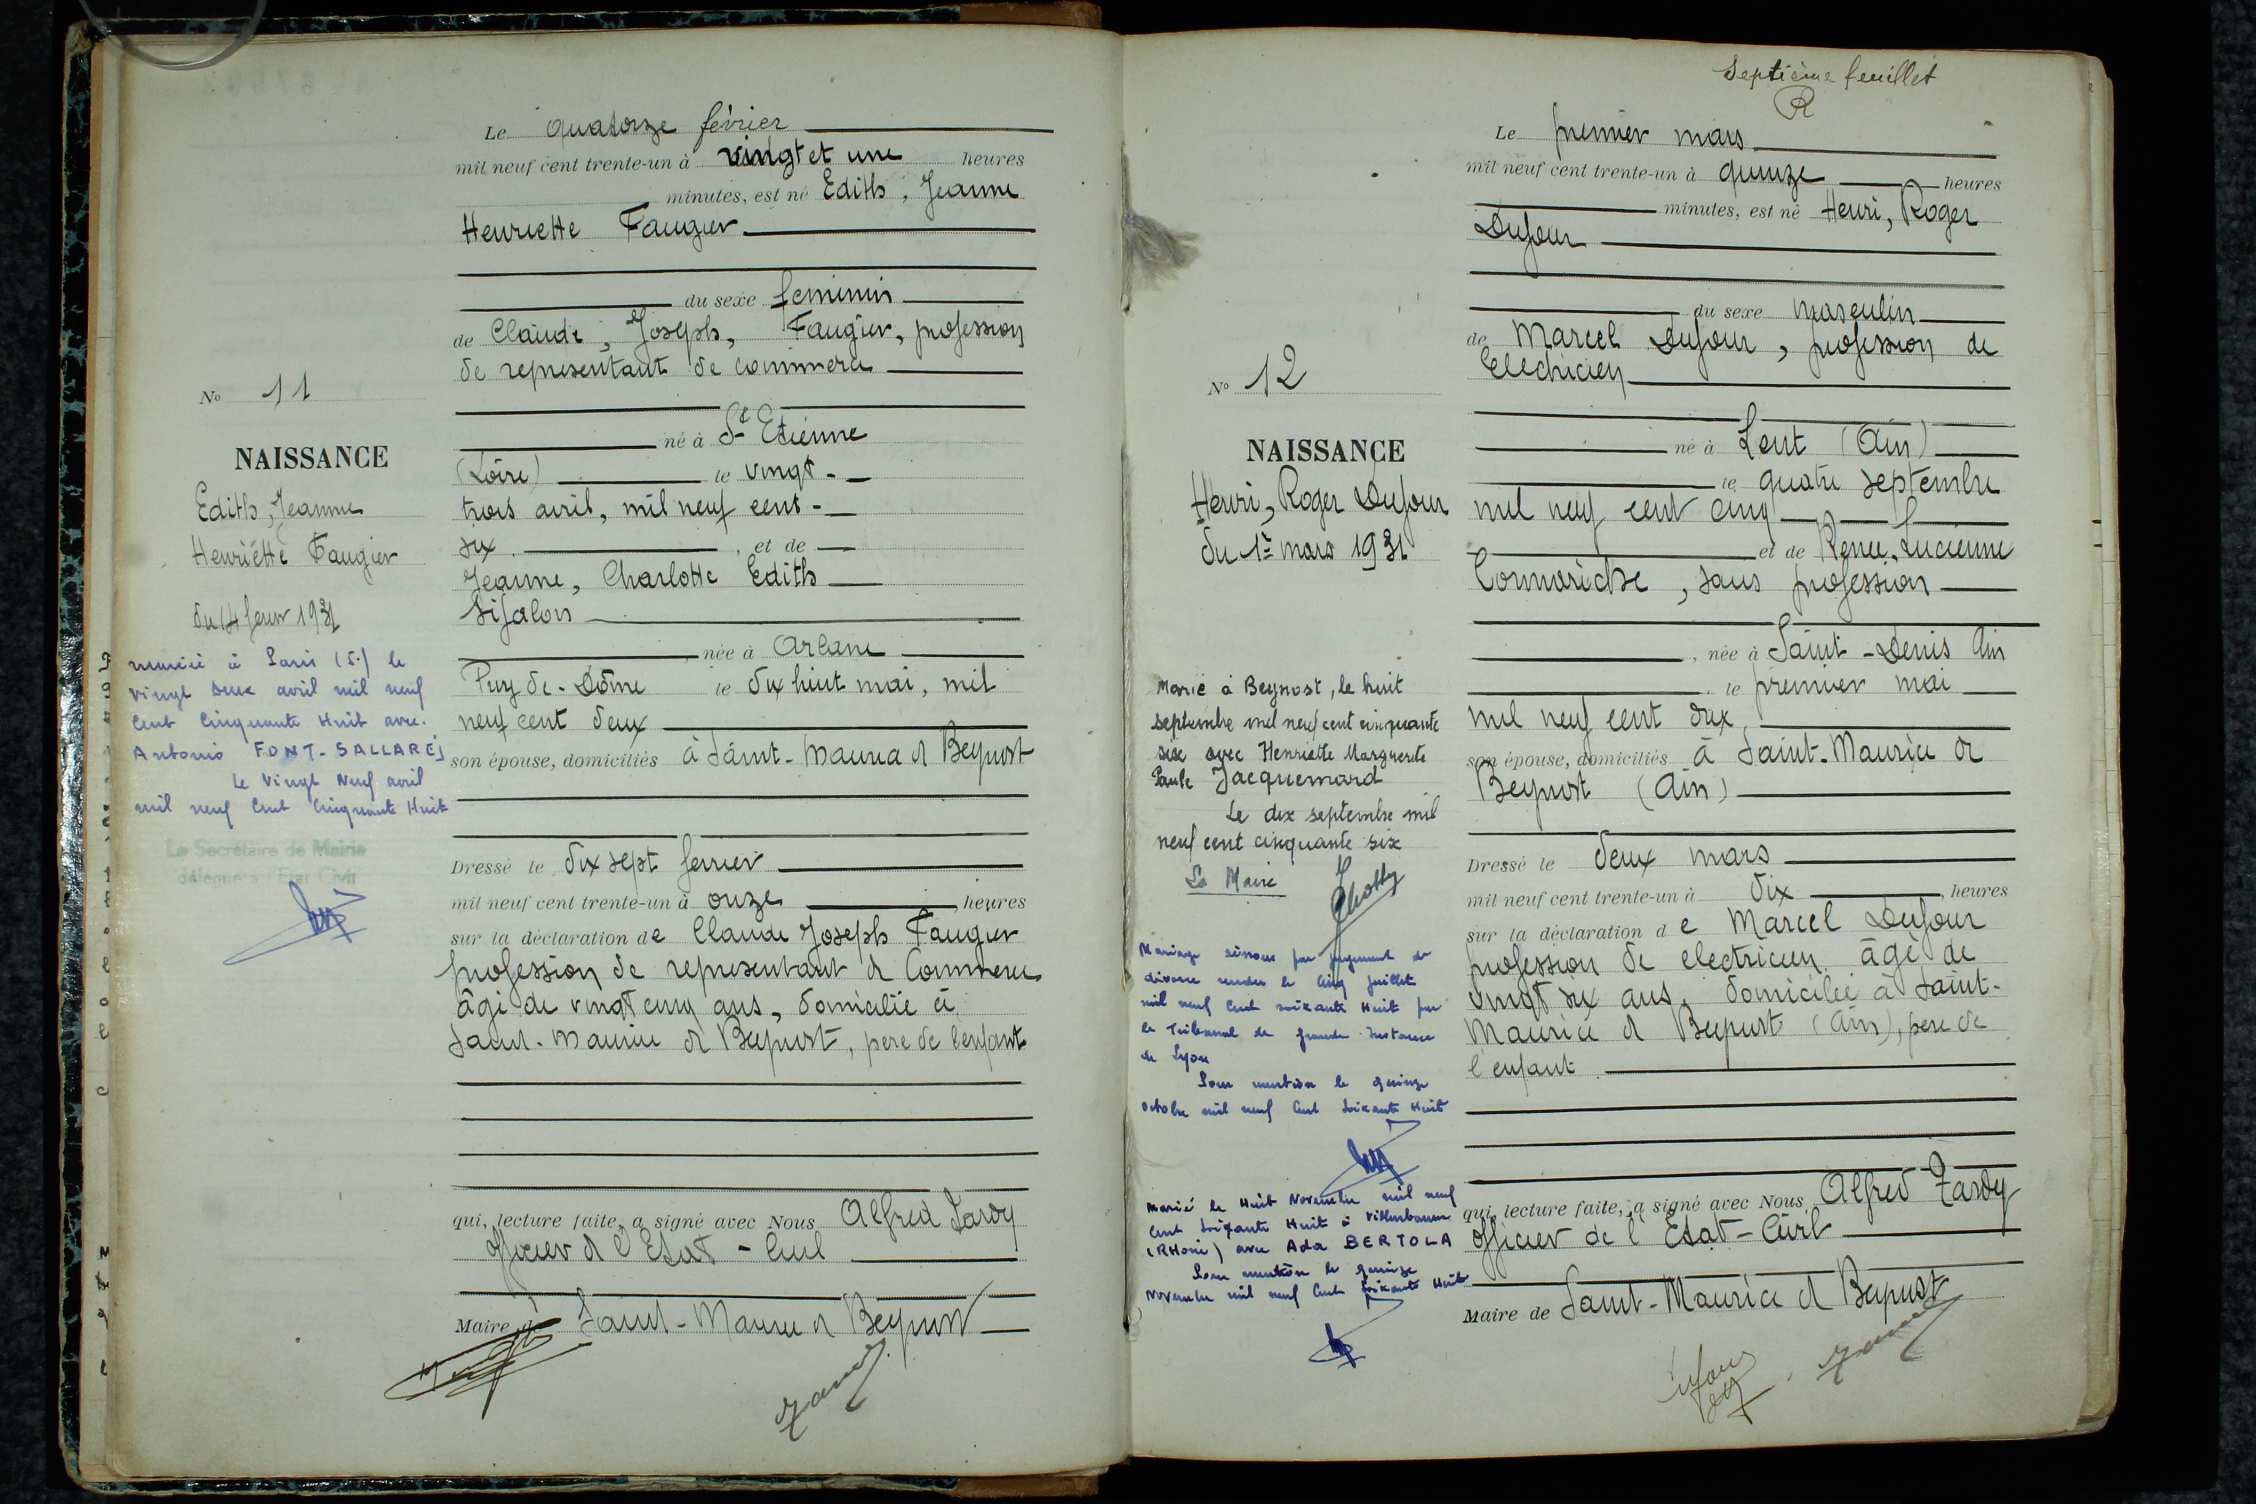 Le quatorze février
mil neuf cent trente-un à vingt et une heures
minutes, est né Edith, Jeanne
Henriette Faugier
du sexe feminin
de Claude, Joseph, Faugier, profession
de representant de commerce
né à St Etienne
(Loire) le vingt-
trois avril, mil neuf cent-
six, et de
Jeanne, Charlotte Edith
Sijalon
née à Arlanc
Puy de-Dôme le dix huit mai, mil
neuf cent deux
son épouse, domiciliés à Saint-Maurice d Beynost
Dressé le dix sept ferrier
mil neuf cent trente-un à onze heures
sur la déclaration de Claude Joseph Faugier
profession de representant d Commerce
âgé de vingt cinq ans, domicilié à
Saint-Maurice d Beynost, pere de l'enfant
qui, lecture faite, a signé avec Nous Alfred Tardy
officier d l'Etat-Civil
Maire de Saint-Maurice d Beynost
No 11
NAISSANCE
Edith, Jeanne
Henriette Faugier
du 14 fevr 1931
mariée à Paris (5e) le
vingt deux avril mil neuf
Cent Cinquante Huit avec
Antonio FONT-SALLARÉS
Le vingt Neuf avril
mil neuf Cent Cinquante Huit
Le Secrétaire de Mairie
délégué à l'Etat Civil
Septième feuillet
R
Le premier mars
mil neuf cent trente-un à quinze heures
minutes, est né Henri, Roger
Dufour
du sexe masculin
de Marcel Dufour, profession de
Electricien
né à Lent (Ain)
le quatre septembre
mil neuf cent cinq
et de Renée, Lucienne
, sans profession
née à Saint-Denis Ain
le premier mai
mil neuf cent dix
son épouse, domiciliés à Saint-Maurice de
Beynost (Ain)
Dressé le deux mars
mil neuf cent trente-un à dix heures
sur la déclaration de Marcel Dufour
profession de electricien âgé de
vingt six ans, domicilié à Saint-
Maurice d Beynost (Ain), pere de
l'enfant
qui, lecture faite, a signé avec Nous, Alfred Tardy
officier de l'Etat-Civil
Maire de Saint-Maurice d Beynost
No 12
NAISSANCE
Henri, Roger Dufour
du 1er mars 1931
Marié à Beynost, le huit
septembre mil neuf cent cinquante
six avec Henriette Marguerite
Paule Jacquemard
Le dix septembre mil
neuf cent cinquante six
Le Maire
Mariage dissous par jugement de
divorce rendu le cinq juillet
mil neuf Cent soixante Huit par
le Tribunal de grande Instance
de Lyon
Pour mention le quinze
octobre mil neuf Cent Soixante Huit
Marié le Huit Novembre mil neuf
Cent Soixante Huit à Villeurbanne
(RHone) avec Ada BERTOLA
Pour mention le quinze
Novembre mil neuf Cent Soixante Huit